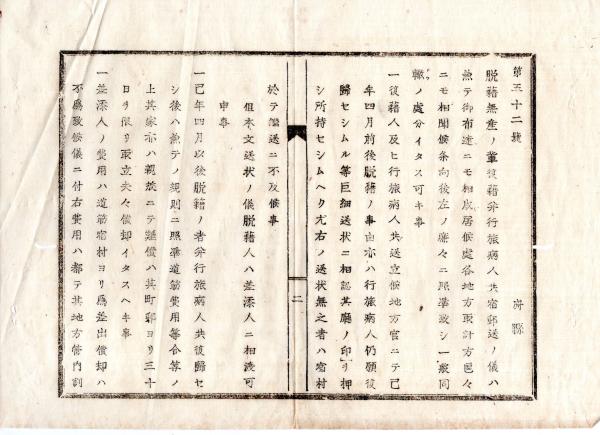 第五十二號
府縣
脱籍無産ノ輩復籍幷行旅病人共宿郵送ノ儀ハ
兼テ御布達ニモ相成居候處各地方取計方區々
ニモ相聞候条向後左ノ廉々ニ照準致シ一般同
轍ノ處分イタス可キ事
一復籍人及ヒ行旅病人共送立候地方官ニテ己
巳年四月前後脱籍ノ事由亦ハ行旅病人仍願復
歸セシムル等巨細送状ニ相認其廳ノ印ヲ押
シ所持セシムヘク尤右ノ送状無之者ハ宿村
二
於テ繼送ニ不及候事
但本文送状ノ儀脱籍人ハ差添人ニ相渡可
申事
一己巳年四月以後脱籍ノ者幷行旅病人共復歸セ
シ後ハ兼テノ規則ニ照準道筋費用等合筭ノ
上其家亦ハ親族ニテ難償ハ其町郷ヨリ三十
日ヲ限リ取立夫々償却イタスヘキ事
一差添人ノ費用ハ道筋宿村ヨリ爲差出償却ハ
不爲致候儀ニ付右費用ハ都テ其地方管内割